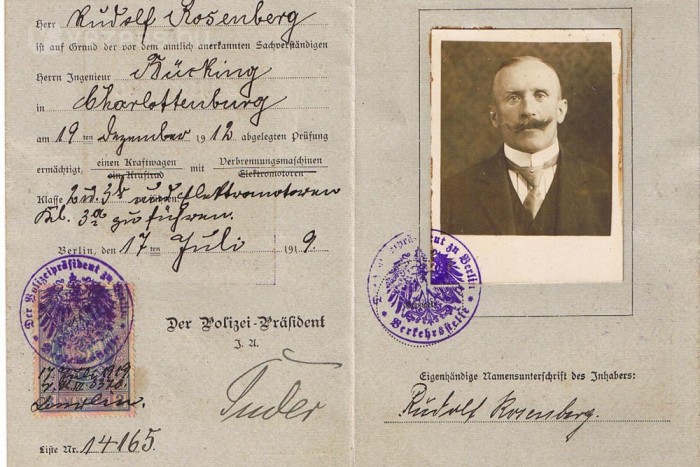 Herr Rudolf Rosenberg
ist auf Grund der vor dem amtlich anerkannten Sachverständigen
Herrn Ingenieur Bücking
in Charlottenburg
am 19 ten Dezember 1912 abgelegten Prüfung
ermächtigt, einen Kraftwagen mit Verbrennungsmaschinen
ein Kraftrad Elektromotoren
Klasse 2 u. 3b und Elektromotoren
Kl. 3a zu führen.
Berlin, den 17 ten Juli 1919.
Der Polizeipräsident zu Berlin
Der Polizei-Präsident
I. A.
17. Juli 1919
Berlin.
Liste Nr. 14165.
Polizeipräsident zu Berlin
Verkehrsstelle
Eigenhändige Namensunterschrift des Inhabers:
Rudolf Rosenberg.